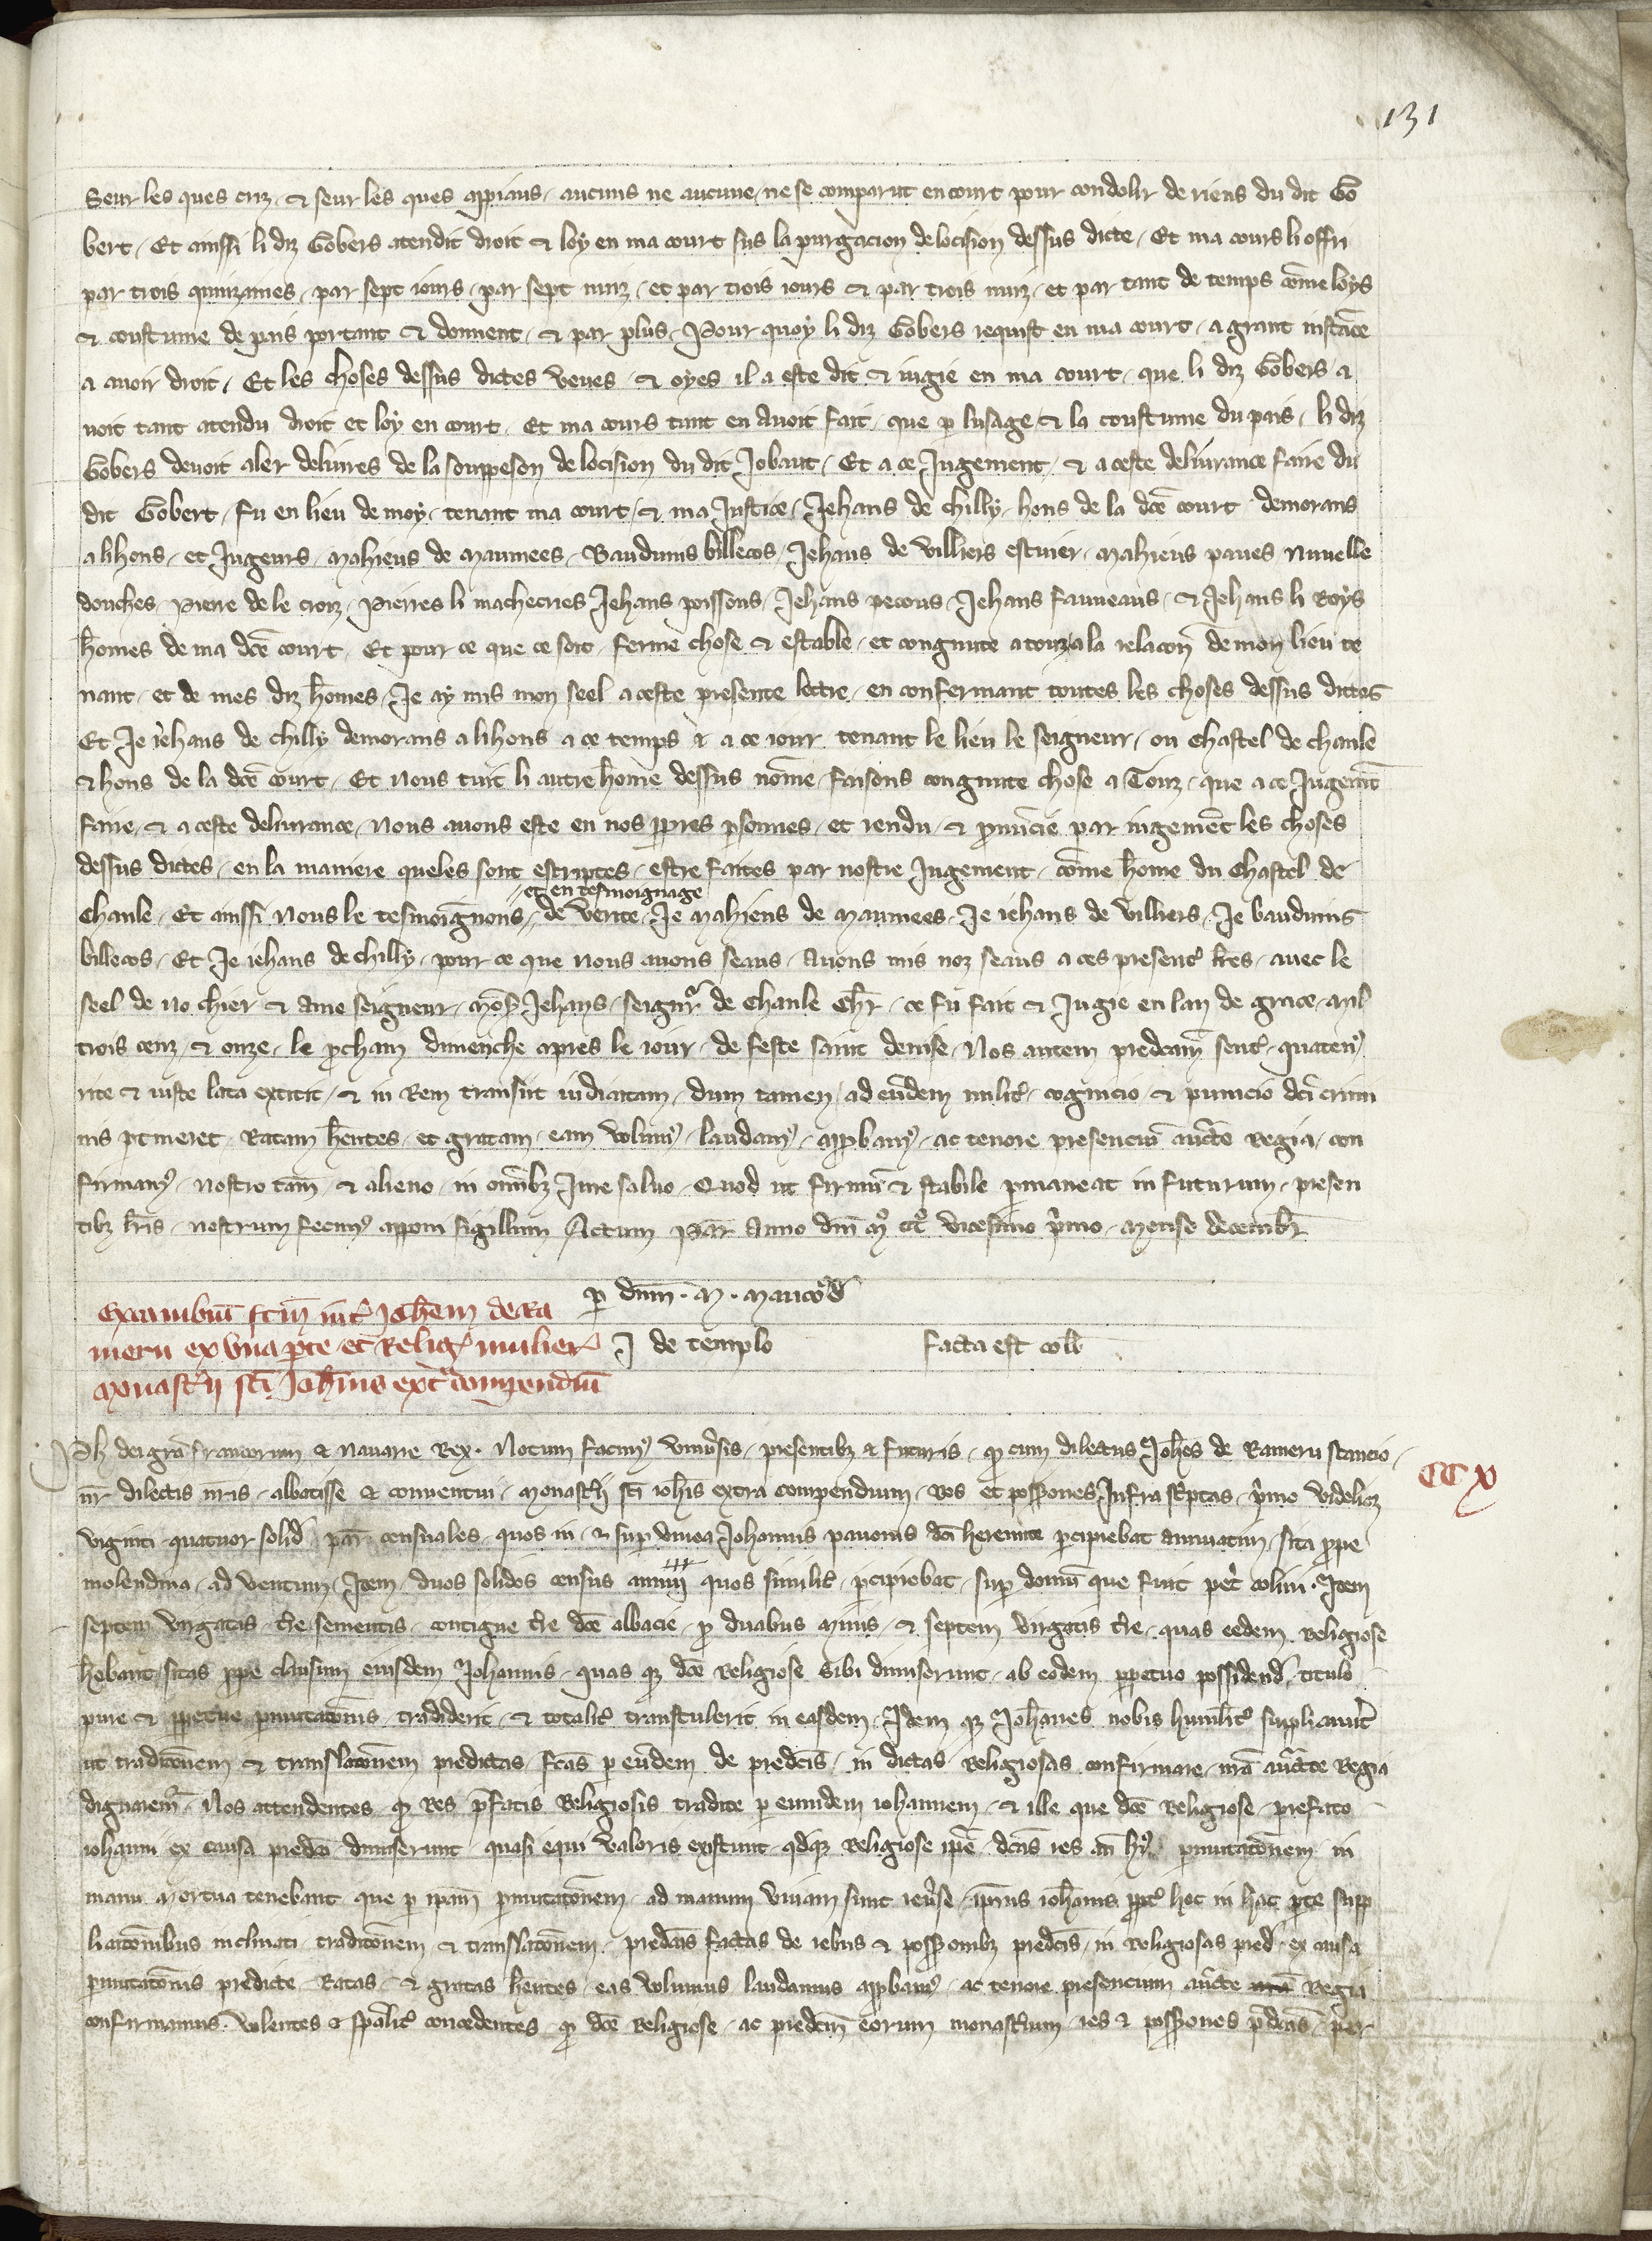 131
Seur les ques criz, & seur les ques appiaus, aucuns ne aucune, ne se comparut en court pour condolir de riens du dit Go
bert, Et ainssi li diz Gobers atendit droit & loy en ma court sus la purgacion de locision dessus dicte, Et ma cours li offri
par trois quinzainnes, par sept iours, par sept nuiz, et par trois iours & par trois nuiz, et par tant de temps cōme loys
& coustume de pais portent & donnent, & par plus, Pour quoy li diz Gobers requist en ma court, a grant instāce
a avoir droit, Et les choses dessus dictes veues, & oyes il a este dit & iugie en ma court, que li diz Gobers a
voit tant atendu droit et loy en court, Et ma cours tant en avoit fait, que p lusage & la coustume du pais, li diz
Gobers devoit aler delivres de la souppeson de locision du dit Jobaut, Et a ce Jugement, & a ceste delivrance faire du
dit Gobert, fu en lieu de moy, tenant ma court, & ma Justice, Jehans de chilly, hons de la dcē court demorans
a lihons, et Jugeurs, Mahieus de Maumees, Bauduins billecos, Jehans de villiers escuier, Mahieus paves nuvelle
douches, Pierre de le croiz, Pierres li machecries Jehans poissons, Jehans pecous, Jehans fauveaus, & Jehans li Roys
hōmes de ma dcē court, Et pour ce que ce soit ferme chose & estable, et congnute a touz a la relacoñ de mon lieu te
nant, et de mes diz hōmes, Je ay mis mon seel a ceste presente lettre, en confermant toutes les choses dessus dictes
Et Je iehans de chilly demorans a lihons a ce temps & a ce iour tenant le lieu le seigneur, ou Chastel de chaule
& hons de la dcē court, Et nous tuit li autre hōme dessus nōme, faisons congnute chose a Touz, que a ce Jugemt̄
faire, & a ceste delivrance, nous avons este en nos ppres psonnes, et rendu, & pnūcie par iugemēt les choses
dessus dictes, en la maniere queles sont escriptes, estre faites par nostre Jugement, cōme hōme du Chastel de
Chaule, Et ainssi nous le tesmoignons, et en tesmoignage de verite, Je Mahieus de Maumees, Je iehans de villiers, Je bauduins
billecos, Et Je iehans de chilly, pour ce que nous avons seaus, Avons mis noz seaus a ces present' lr̄es, avec le
seel de no chier & ame seigneur, mōs' Jehans, seignr̄ de Chaule Chlr̄, ce fu fait & Jugie en lan de grace, mil
trois cenz, & onze, le pchain dimenche apres le iour, de feste saint denise, Nos autem predcam̄ sent', quaten'
rite & iuste lata extitit, & in Rem transiit iudicatam, dum tamen, ad eūdem milit', cognicio, & punicio dc̄i crimi
nis ptineret, Ratam hēntes, et gratam, eam volum', laudam', appbam', ac tenore presenciū auctē Regia, con
firmam', nostro tam̄, & alieno, in omībz Jure salvo, Quod ut firmū & stabile pmaneat in futurum, presen
tibz lr̄is, nostrum fecim' apponi sigillum Actum Par̄ Anno dn̄i M° CCC° vicesimo p̄mo, Mense decembr̄
p dnm̄ . M . Mauco'd'
Excambiū fcm̄ int' Joh̄em de Ra
meru ex una pte et Relig' mulier' J de templo facta est coll̄
Monast'ii scī Joh̄nis ext' Compendiū
Ph dei grā francorum & navarre Rex . Notum facim' univ̄sis, presentibz & futuris, q' cum dilectus Joh̄es de Rameru stancio
nr̄ dilectis nr̄is, abbatisse & conventui, Monast'ij scī ioh̄is extra compendium, Res et possōnes Infra sc̄ptas, p̄mo videlicz
viginti quatuor solid' par̄ censuales, quos in & sup vinea Johannis pavonis dcī heremite pcipiebat annuatim, sita ppe
molendina, ad ventum, Item, duos solidos census annui quos similit', pcipiebat, sup domū que fuit pet' colini . Item
septem virgatis, tr̄e sementis, contigue tr̄e dcē abbacie, p duabus minis, & septem virgatis tr̄e, quas eedem Religiose
hēbant, sitas ppe clausum eiusdem Johannis, quas qz dcē Religiose sibi dimiserunt, ab eodem ppetuo possidend', titulo
pure & ppetue pmutacōnis, tradiderit, & totalit' transtulerit in easdem, Idem qz Joh̄anes nobis humilit' supplicavit
ut tradicōnem & translacōnem predictas, fcās p eūdem de predcīs, in dictas Religiosas confirmare, nrā auctē Regia
dignarem'. Nos attendentes, q' Res p̄fatis Religiosis tradite p eumdem iohannem, & ille que dcē Religiose, prefato
iohanni ex causa predcā, dimiserunt, quasi equi valoris existunt, qdqz Religiose ip̄e, dcās res an̄ h' pmutacōnem, in
manu mortua tenebant que p ipam̄ pmutacōnem, ad manum vivam sunt rev̄se, ipīus ioh̄anis ppt' hoc in hac pte supp
licacōnibus inclinati, tradicōnem & translacōnem, predcās factas de rebus & possōnibz predcīs, in Religiosas pred', ex causa
pmutacōnis predicte, Ratas, & gratas hēntes, eas volumus laudamus appbam', ac tenore presencium auctē nrā Regia
confirmamus. Volentes & sp̄alit' concedentes, q' dcē Religiose, ac predcm̄ eorum monast'ium, res & possōnes p̄dcās, per
CC x